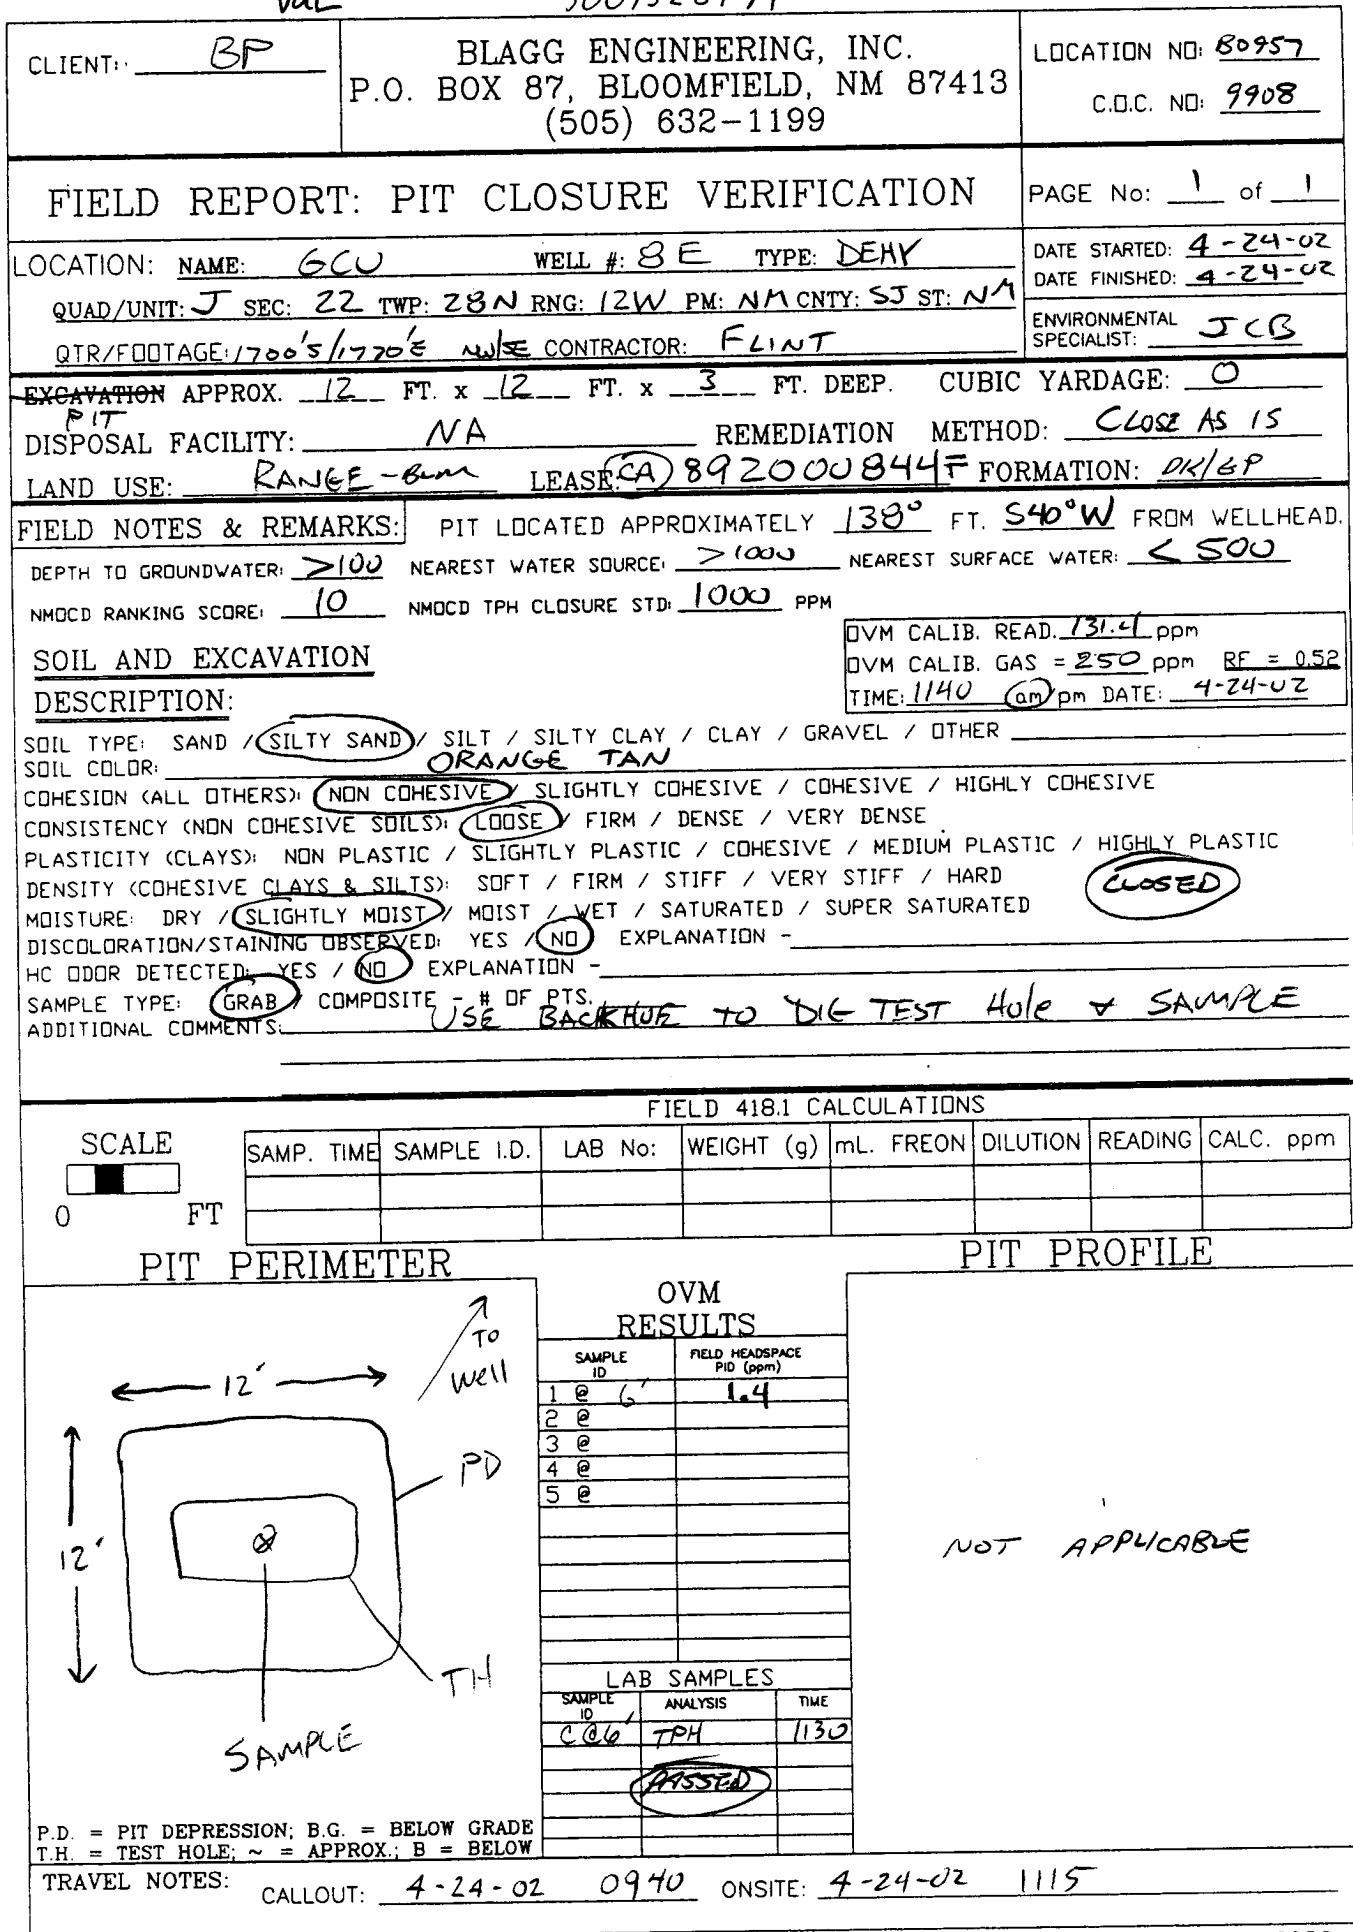 CLIENT: BP
BLAGG ENGINEERING, INC.
P.O. BOX 87, BLOOMFIELD, NM 87413
(505) 632-1199
LOCATION NO: B0957
C.O.C. NO: 9908
FIELD REPORT: PIT CLOSURE VERIFICATION
PAGE No: 1 of 1
LOCATION: NAME: GCU WELL #: 8E TYPE: DEHY
QUAD/UNIT: J SEC: 22 TWP: 28N RNG: 12W PM: NM CNTY: SJ ST: NM
QTR/FOOTAGE: 1700'S/1770'E NW/SE CONTRACTOR: FLINT
DATE STARTED: 4-24-02
DATE FINISHED: 4-24-02
ENVIRONMENTAL SPECIALIST: JCB
EXCAVATION APPROX. 12 FT. x 12 FT. x 3 FT. DEEP. CUBIC YARDAGE: 0
PIT
DISPOSAL FACILITY: NA REMEDIATION METHOD: CLOSE AS IS
LAND USE: RANGE-BLM LEASE: CA 892000844F FORMATION: DK/GP
FIELD NOTES & REMARKS: PIT LOCATED APPROXIMATELY 138° FT. S40°W FROM WELLHEAD.
DEPTH TO GROUNDWATER: >100 NEAREST WATER SOURCE: >1000 NEAREST SURFACE WATER: < 500
NMOCD RANKING SCORE: 10 NMOCD TPH CLOSURE STD: 1000 PPM
OVM CALIB. READ. 131.4 ppm
OVM CALIB. GAS = 250 ppm RF = 0.52
TIME: 1140 am pm DATE: 4-24-02
SOIL AND EXCAVATION
DESCRIPTION:
SOIL TYPE: SAND / SILTY SAND / SILT / SILTY CLAY / CLAY / GRAVEL / OTHER
SOIL COLOR: ORANGE TAN
COHESION (ALL OTHERS): NON COHESIVE / SLIGHTLY COHESIVE / COHESIVE / HIGHLY COHESIVE
CONSISTENCY (NON COHESIVE SOILS): LOOSE / FIRM / DENSE / VERY DENSE
PLASTICITY (CLAYS): NON PLASTIC / SLIGHTLY PLASTIC / COHESIVE / MEDIUM PLASTIC / HIGHLY PLASTIC
DENSITY (COHESIVE CLAYS & SILTS): SOFT / FIRM / STIFF / VERY STIFF / HARD
CLOSED
MOISTURE: DRY / SLIGHTLY MOIST / MOIST / WET / SATURATED / SUPER SATURATED
DISCOLORATION/STAINING OBSERVED: YES / NO EXPLANATION -
HC ODOR DETECTED: YES / NO EXPLANATION -
SAMPLE TYPE: GRAB / COMPOSITE - # OF PTS.
ADDITIONAL COMMENTS: USE BACKHOE TO DIG TEST Hole & SAMPLE
FIELD 418.1 CALCULATIONS
SCALE
0 FT
SAMP. TIME SAMPLE I.D. LAB No: WEIGHT (g) mL. FREON DILUTION READING CALC. ppm
PIT PERIMETER
PIT PROFILE
OVM
RESULTS
SAMPLE ID FIELD HEADSPACE PID (ppm)
1 @ 6' 1.4
2 @
3 @
4 @
5 @
TO
Well
12'
PD
12'
TH
SAMPLE
NOT APPLICABLE
LAB SAMPLES
SAMPLE ID ANALYSIS TIME
C@6' TPH 1130
PASSED
P.D. = PIT DEPRESSION; B.G. = BELOW GRADE
T.H. = TEST HOLE; ~ = APPROX.; B = BELOW
TRAVEL NOTES: CALLOUT: 4-24-02 0940 ONSITE: 4-24-02 1115